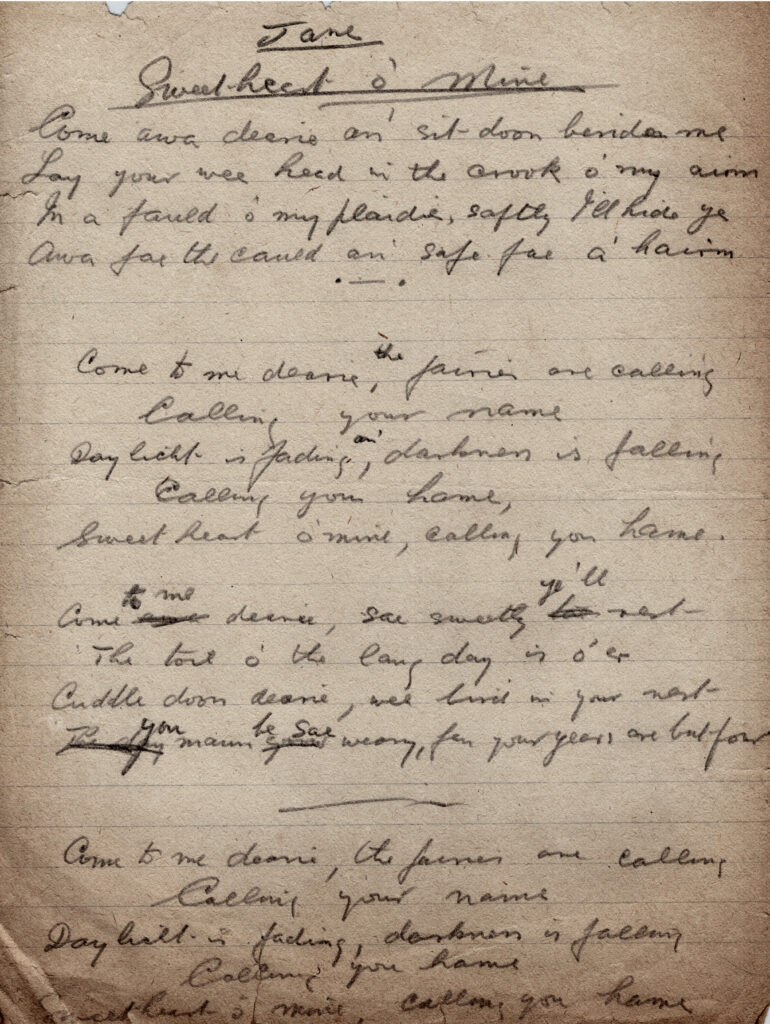 Jane
Sweetheart o' Mine
Come awa dearie an' sit doon beside me
Lay your wee head in the crook o' my airm
In a fauld o' my plaidie, saftly I'll hide ye
Awa fae the cauld an' safe fae a' hairm
Come to me dearie, the fairies are calling
Calling your name
Daylicht is fading, an' darkness is falling
Calling you hame,
Sweetheart o' mine, calling you hame.
Come to me dearie, sae sweetly ye'll rest
The toil o' the lang day is o'er
Cuddle doon dearie, wee bird in your nest
you maun be sae weary, fer your years are but four
Come to me dearie, the fairies are calling
Calling your name
Daylicht is fading, darkness is falling
Calling you hame
Sweetheart o' mine, calling you hame